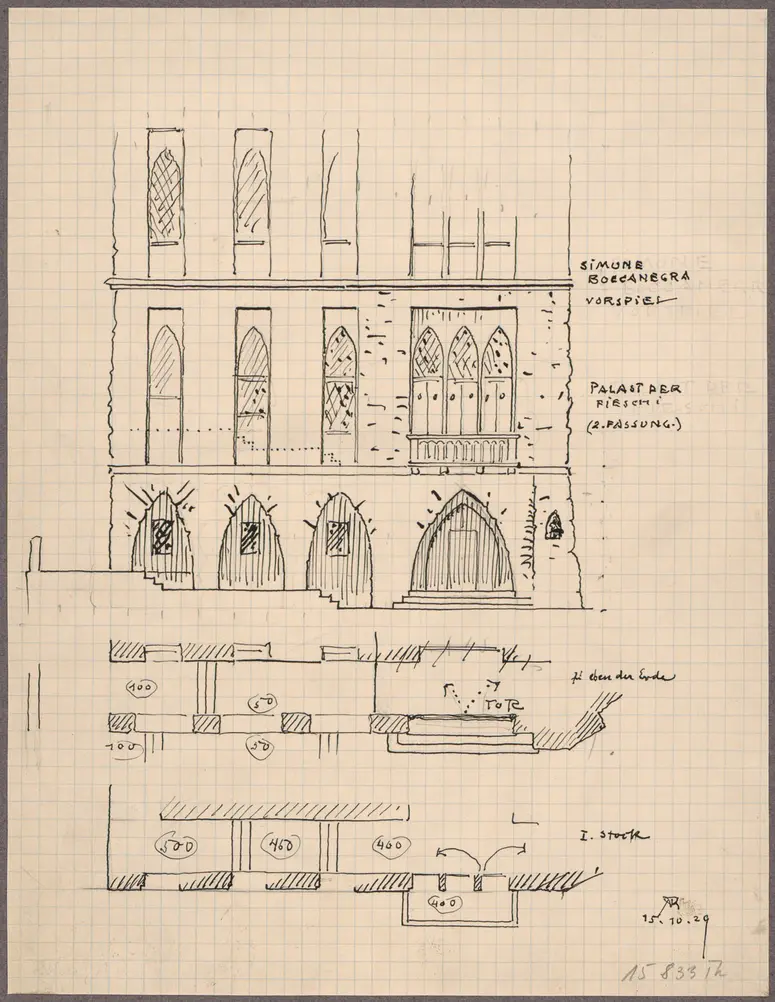 SIMONE
BOCCANEGRA
VORSPIEL
PALAST DER
FIESCHI
(2. FASSUNG.)
zu ebener Erde
100
50
TOR
100
50
I. Stock
500
460
460
400
AR
15.10.29
15 833 Th